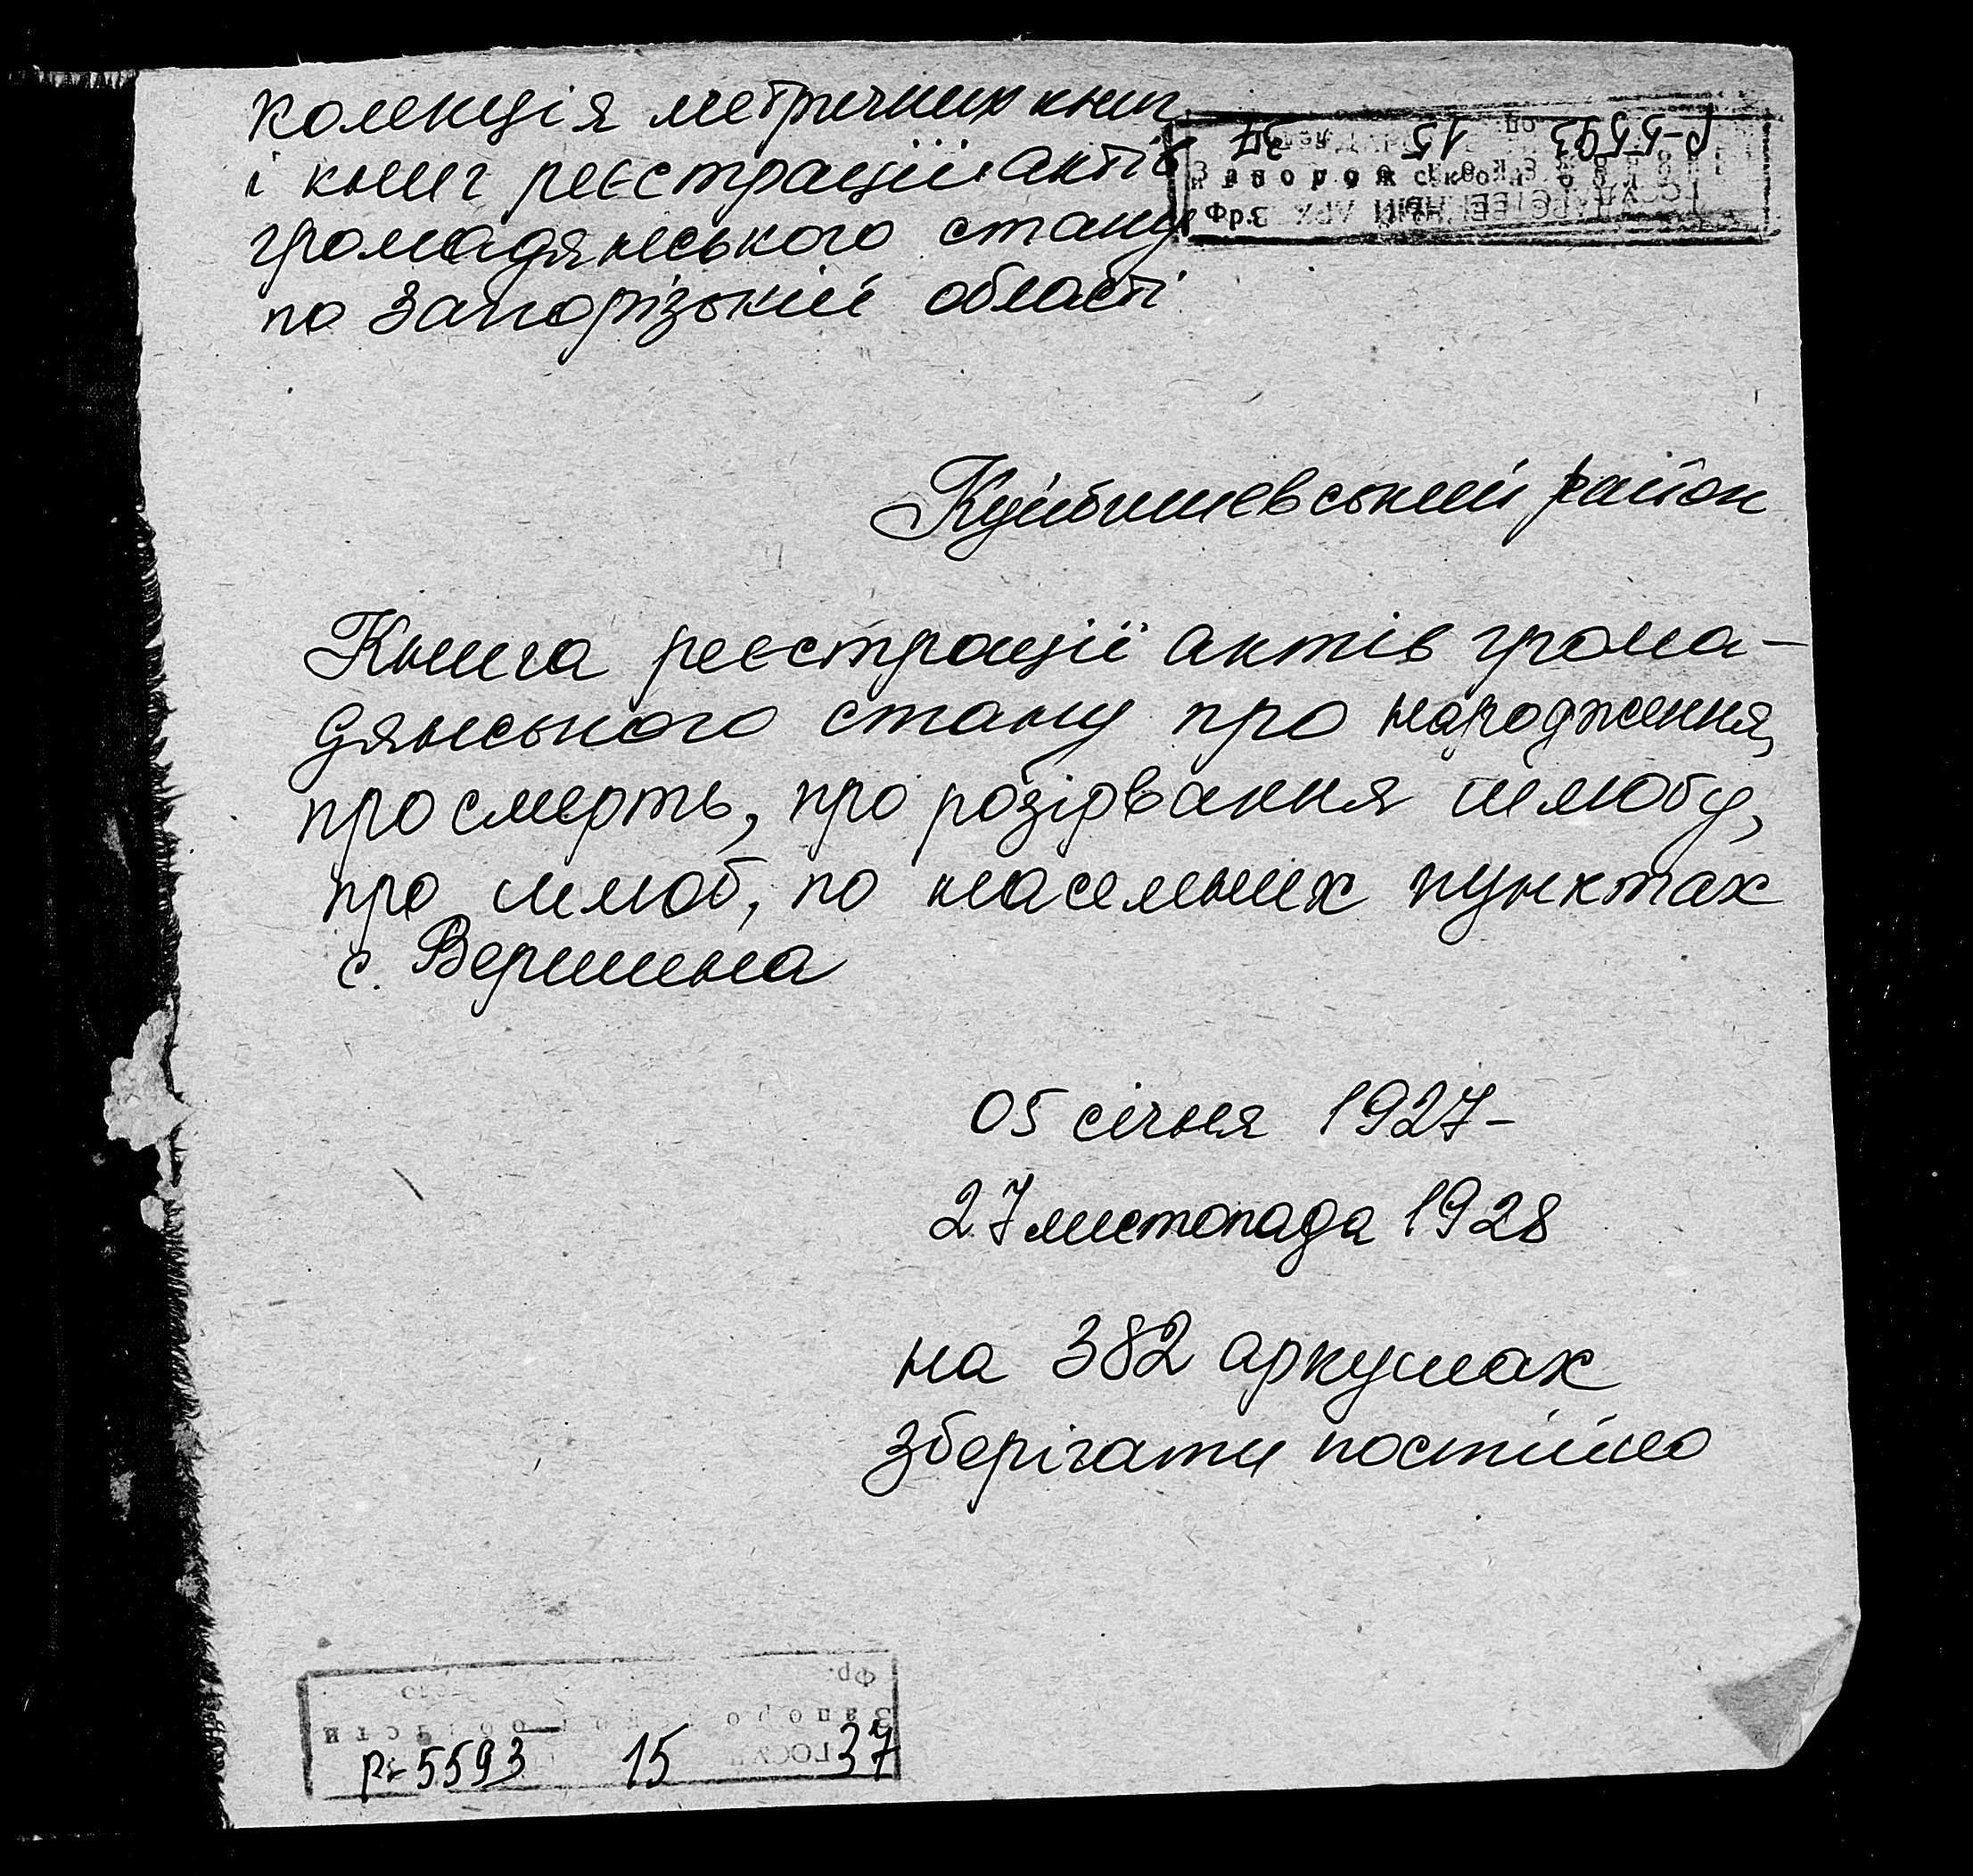 колекція метричних книг
і книг реєстрації актів
громадянського стану
по Запорізькій області
Р-5593 15 37
Запорожской
Фр.
Куйбишевський район
Книга реєстрації актів грома-
дянського стану про народження,
про смерть, про розірвання шлюбу,
про шлюб, по населених пунктах
с. Вершина
05 січня 1927-
27 листопада 1928
на 382 аркушах
зберігати постійно
Фр.
области
Р-5593 15 37